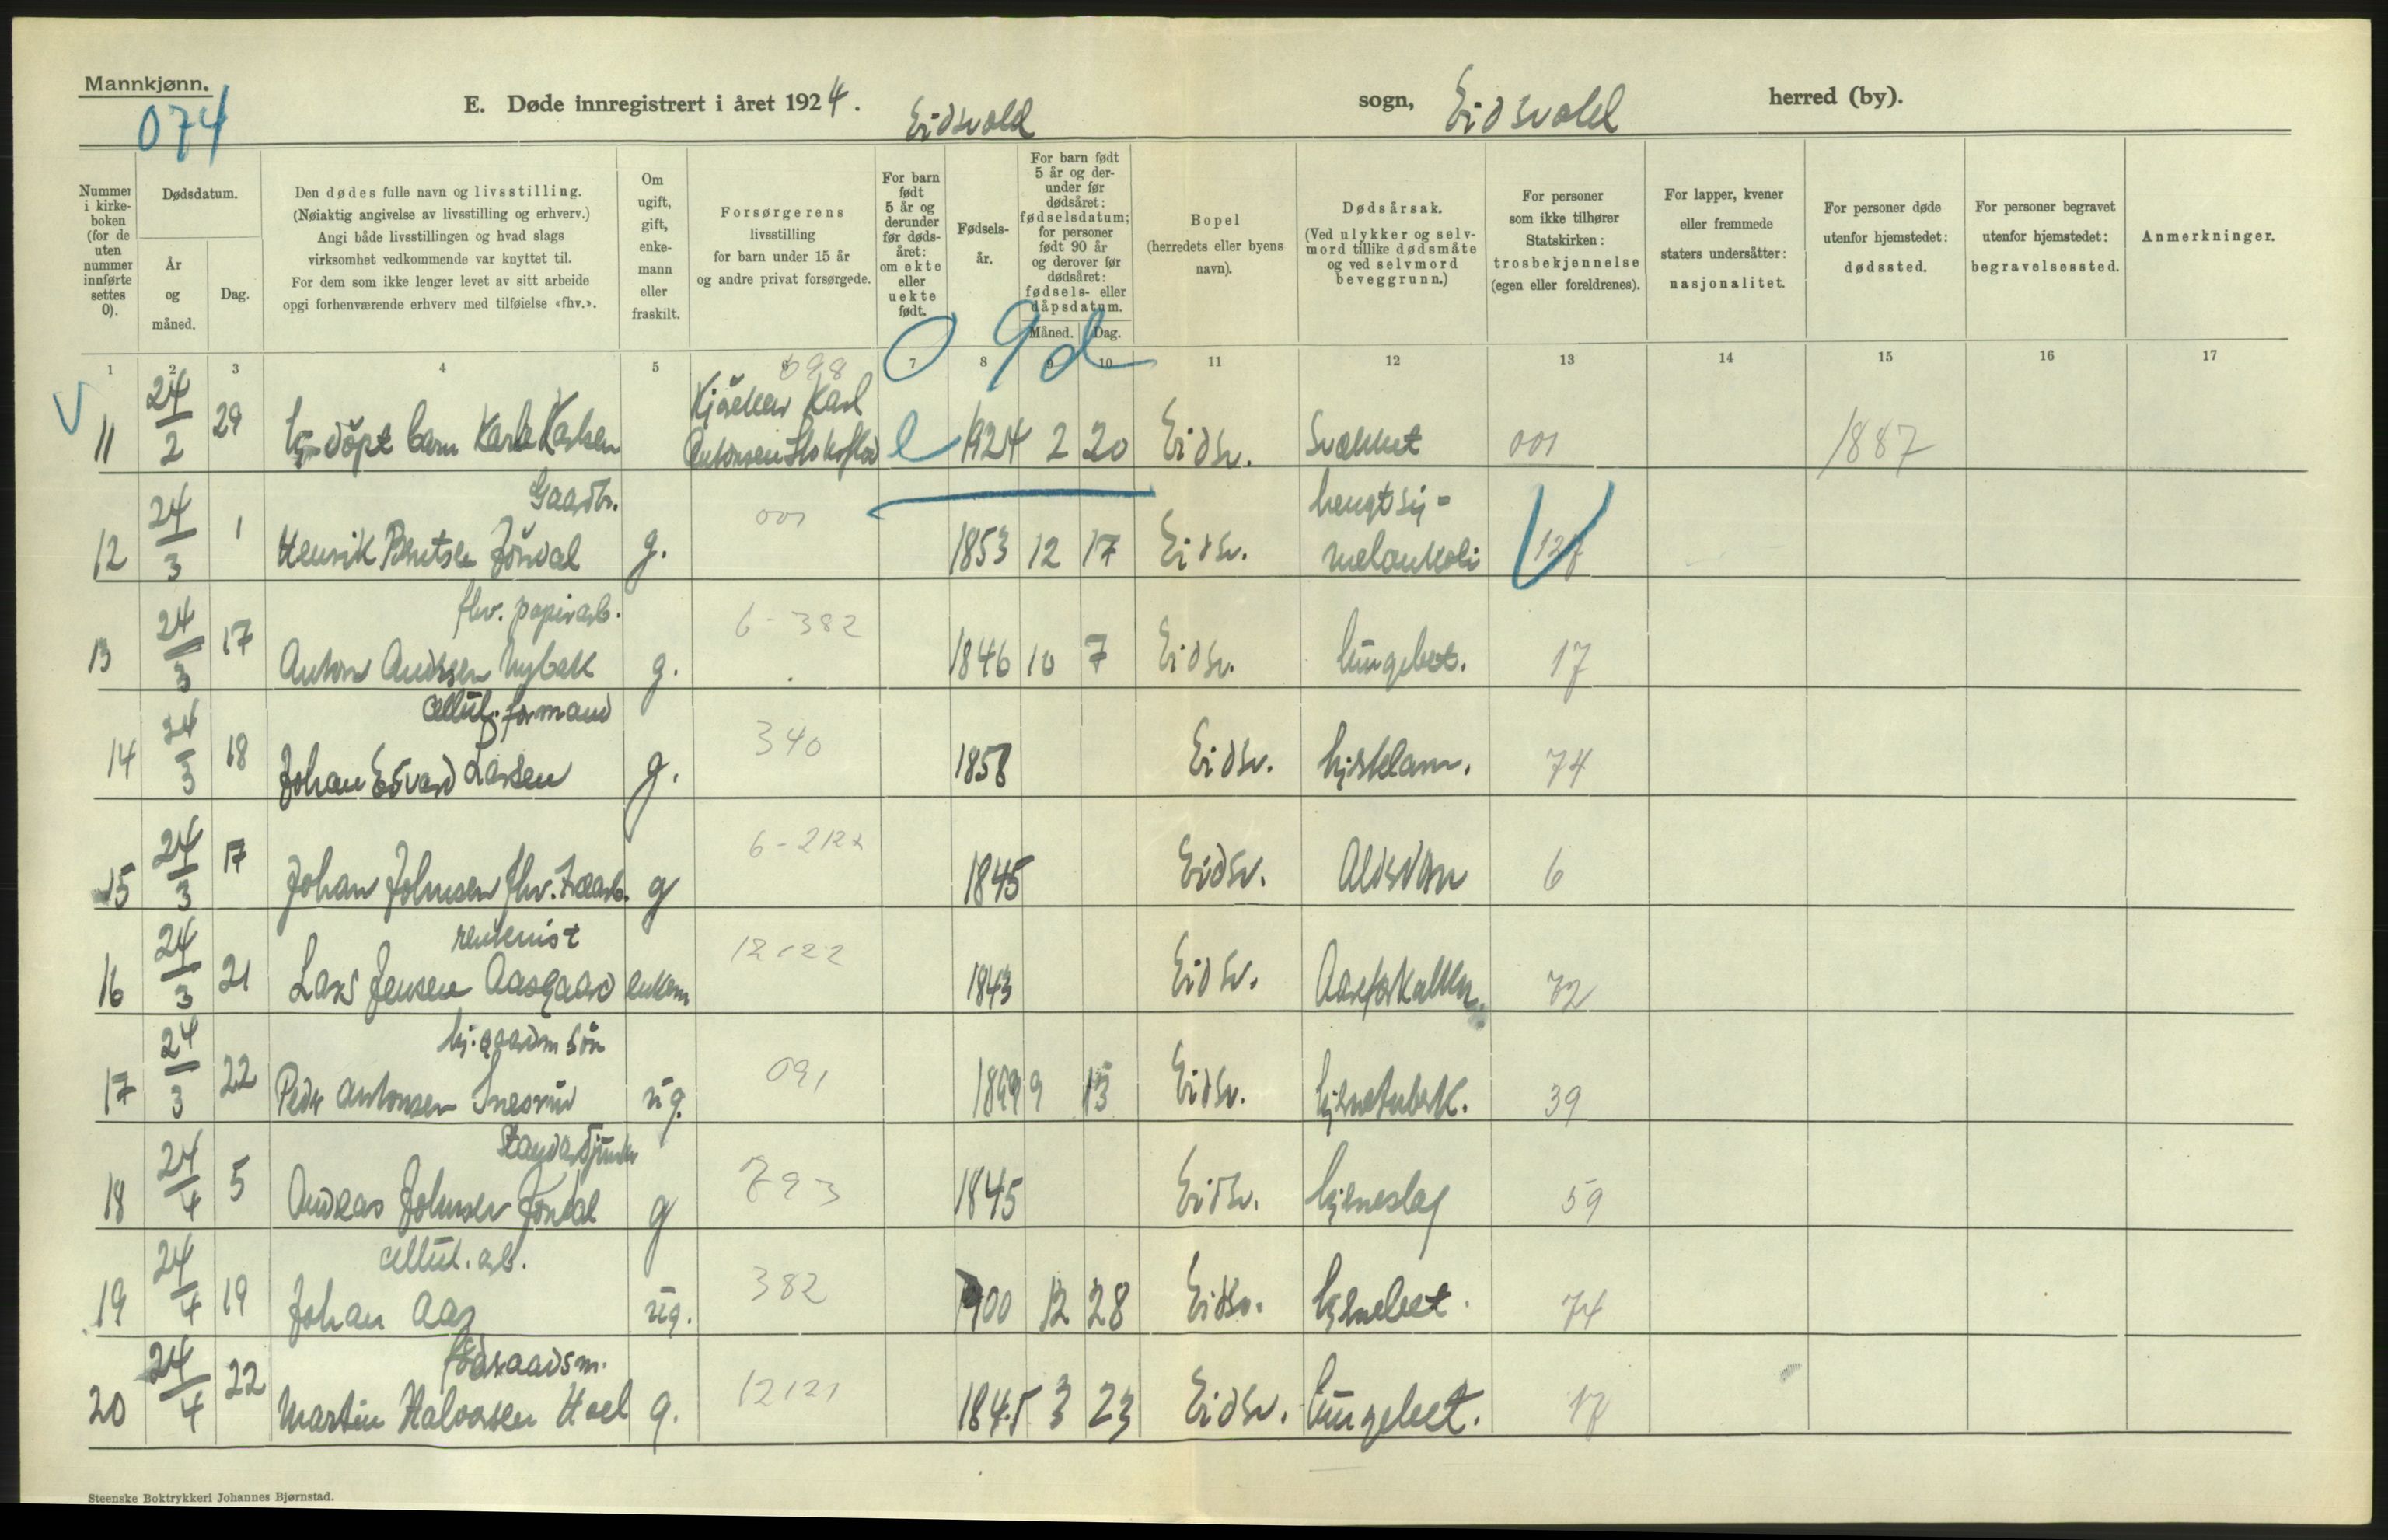 Mannkjønn.
074
E. Døde innregistrert i året 1924. Eidsvold sogn, Eidsvold herred (by).
Nummer i kirke-boken (for de uten nummer innførte settes 0).
Dødsdatum.
År og måned.
Dag.
Den dødes fulle navn og livsstilling.
(Nøiaktig angivelse av livsstilling og erhverv.)
Angi både livsstillingen og hvad slags
virksomhet vedkommende var knyttet til.
For dem som ikke lenger levet av sitt arbeide
opgi forhenværende erhverv med tilføielse «fhv.».
Om ugift, gift, enke-mann eller fraskilt.
Forsørgerens
livsstilling
for barn under 15 år
og andre privat forsørgede.
For barn født 5 år og derunder før døds-året: om ekte eller uekte født.
Fødsels-år.
For barn født 5 år og der-under før dødsåret: fødselsdatum; for personer født 90 år og derover før dødsåret: fødsels- eller dåpsdatum.
Måned. Dag.
Bopel
(herredets eller byens
navn).
Dødsårsak.
(Ved ulykker og selv-
mord tillike dødsmåte
og ved selvmord
beveggrunn.)
For personer
som ikke tilhører
Statskirken:
trosbekjennelse
(egen eller foreldrenes).
For lapper, kvener
eller fremmede
staters undersåtter:
nasjonalitet.
For personer døde
utenfor hjemstedet:
dødssted.
For personer begravet
utenfor hjemstedet:
begravelsessted.
Anmerkninger.
1 2 3 4 5 6 7 8 9 10 11 12 13 14 15 16 17
098
0 9 d
11 24/2 29 døpt barn Karl Karlsen Kjørekar Karl Antonsen e 1924 2 20 Eidsv. Svækket 001 1887
Gaardbr. hengt sig -
12 24/3 1 Henrik Berntsen Jöndal g. 001 1853 12 17 Eidsv. melankoli 127
fhv. papirarb.
13 24/3 17 Anton Andersen Nybakk g. 6-382 1846 10 7 Eidsv. lungebet. 17
cellul. formand
14 24/3 18 Johan Edvard Larsen g. 340 1858 Eidsv. hjertelam. 74
15 24/3 17 Johan Johnsen fhv. g 6-212 1845 Eidsv. Aldersdom 6
rentenist
16 24/3 21 Lars Jensen Aasgaard enkem 12122 1843 Eidsv. Aareforkalkn. 72
hj. gaardm sön
17 24/3 22 Peder Antonsen ug. 091 1899 9 15 Eidsv. hjernetuberk. 39
Standardjunker
18 24/4 5 Andreas Johnsen Jöndal g 793 1845 Eidsv. hjerneslag 59
cellul. arb.
19 24/4 19 Johan Aas ug. 382 1900 12 28 Eidsv. hjernebet. 74
föderaadsm.
20 24/4 22 Martin Halvorsen Hoel g. 12121 1845 3 23 Eidsv. lungebet. 17
Steenske Boktrykkeri Johannes Bjørnstad.